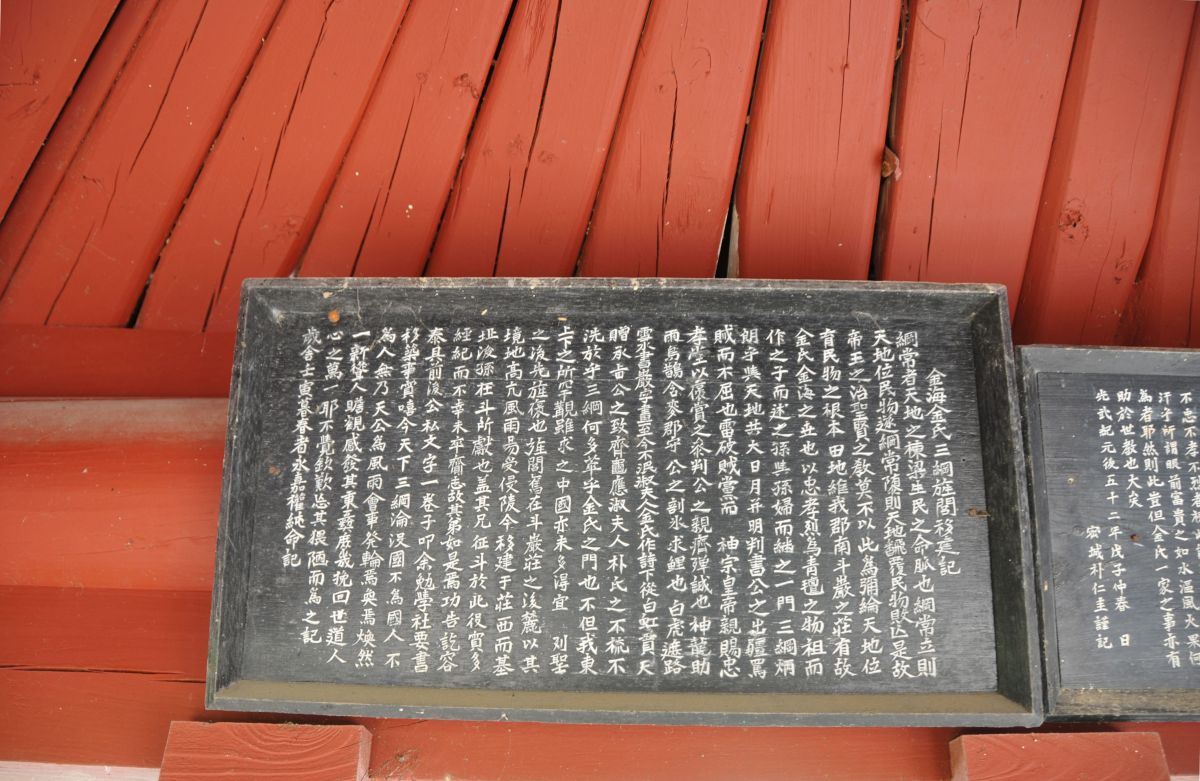 不忠不孝不烈
汗乎所謂眼前富貴之如水漚風火
為者耶然則此豈但金氏一家之事亦有
助於世教也大矣
光武紀元後五十二年戊子仲春　日
宏城朴仁圭謹記
金海金氏三綱旌閭移建記
綱常者天地之棟梁生民之命脈也綱常立則
天地位民物遂綱常隳則天地飜覆民物敗亡是故
帝王之治聖賢之教莫不以此為彌綸天地位
有民物之根本田地維我郡南斗巖之莊有故
金氏金海之世也以忠孝烈為青氊之物祖而
作之子而述之孫與孫婦而継之一門三綱炳
如乎與天地共大日月并明判書公之出疆罵
賊而不屈也雷破賊黨而　神宗皇帝親賜忠
孝以褒賞之參判公之親癠殫誠也神龍助
雨烏鵲含麥郡守公之剖氷求鯉也白虎遮路
雲書嚴字畫至今不泯淑夫人金氏作詩下從白虹貫天
贈承旨公之致齊應淑夫人朴氏之不梳不
洗於乎三綱何多萃乎金氏之門也不但我東
上下之所罕覯雖求之中國亦未多得宜　列聖
之後先旌褒也旌閭舊在斗巖莊之後麓以其
境地高亢風雨易受侵陵今移建于莊西而基
垃後孫枉斗所獻也盖其兄征斗於此役實多
經紀而不幸未卒齎志故其弟如是焉功告訖容
泰具前後公私文字一卷子叩余勉學社要書
移築事實嘻今天下三綱淪沒國不為國人不
為人無乃天公為風雨會事癸輪焉奐焉煥然
一新使人瞻觀感發其秉彝庶幾挽回世道人
心之萬一耶不覺欽歎忘其猥陋而為之記
歲舍壬寅暮春者永嘉權純命記